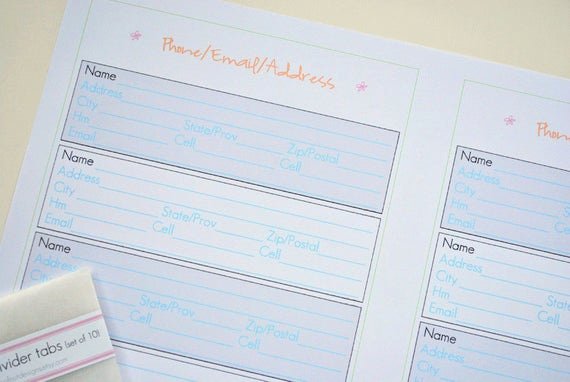 Phone/Email/Address
Name
Address
City State/Prov Zip/Postal
Hm Cell
Email
Name
Address
City State/Prov Zip/Postal
Hm Cell
Email
Name
Address
State/Prov Zip/Postal
Cell
Name
Address
City
Hm
Email
Name
Address
City
Hm
Email
Name
Address
City
tabs (set of 10)